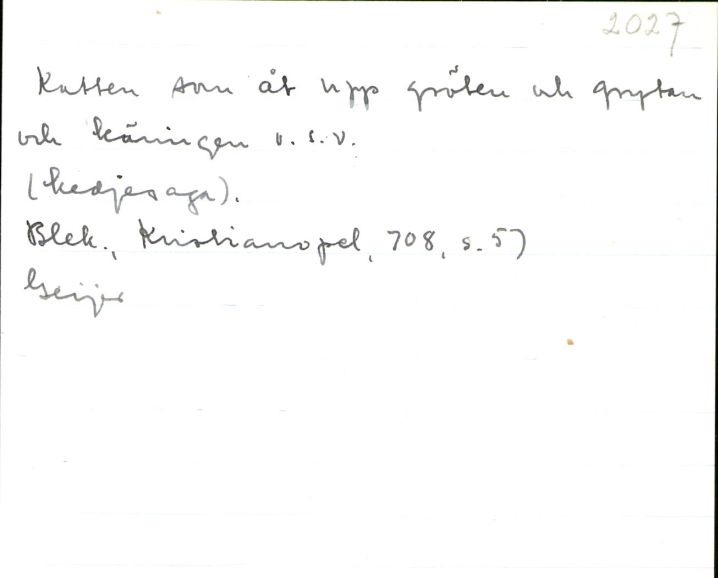 2027
Katten som åt upp gröten och grytan
och käringen o. s. v.
(kedjesaga).
Blek., Kristianopel, 708, s. 57
Geijer